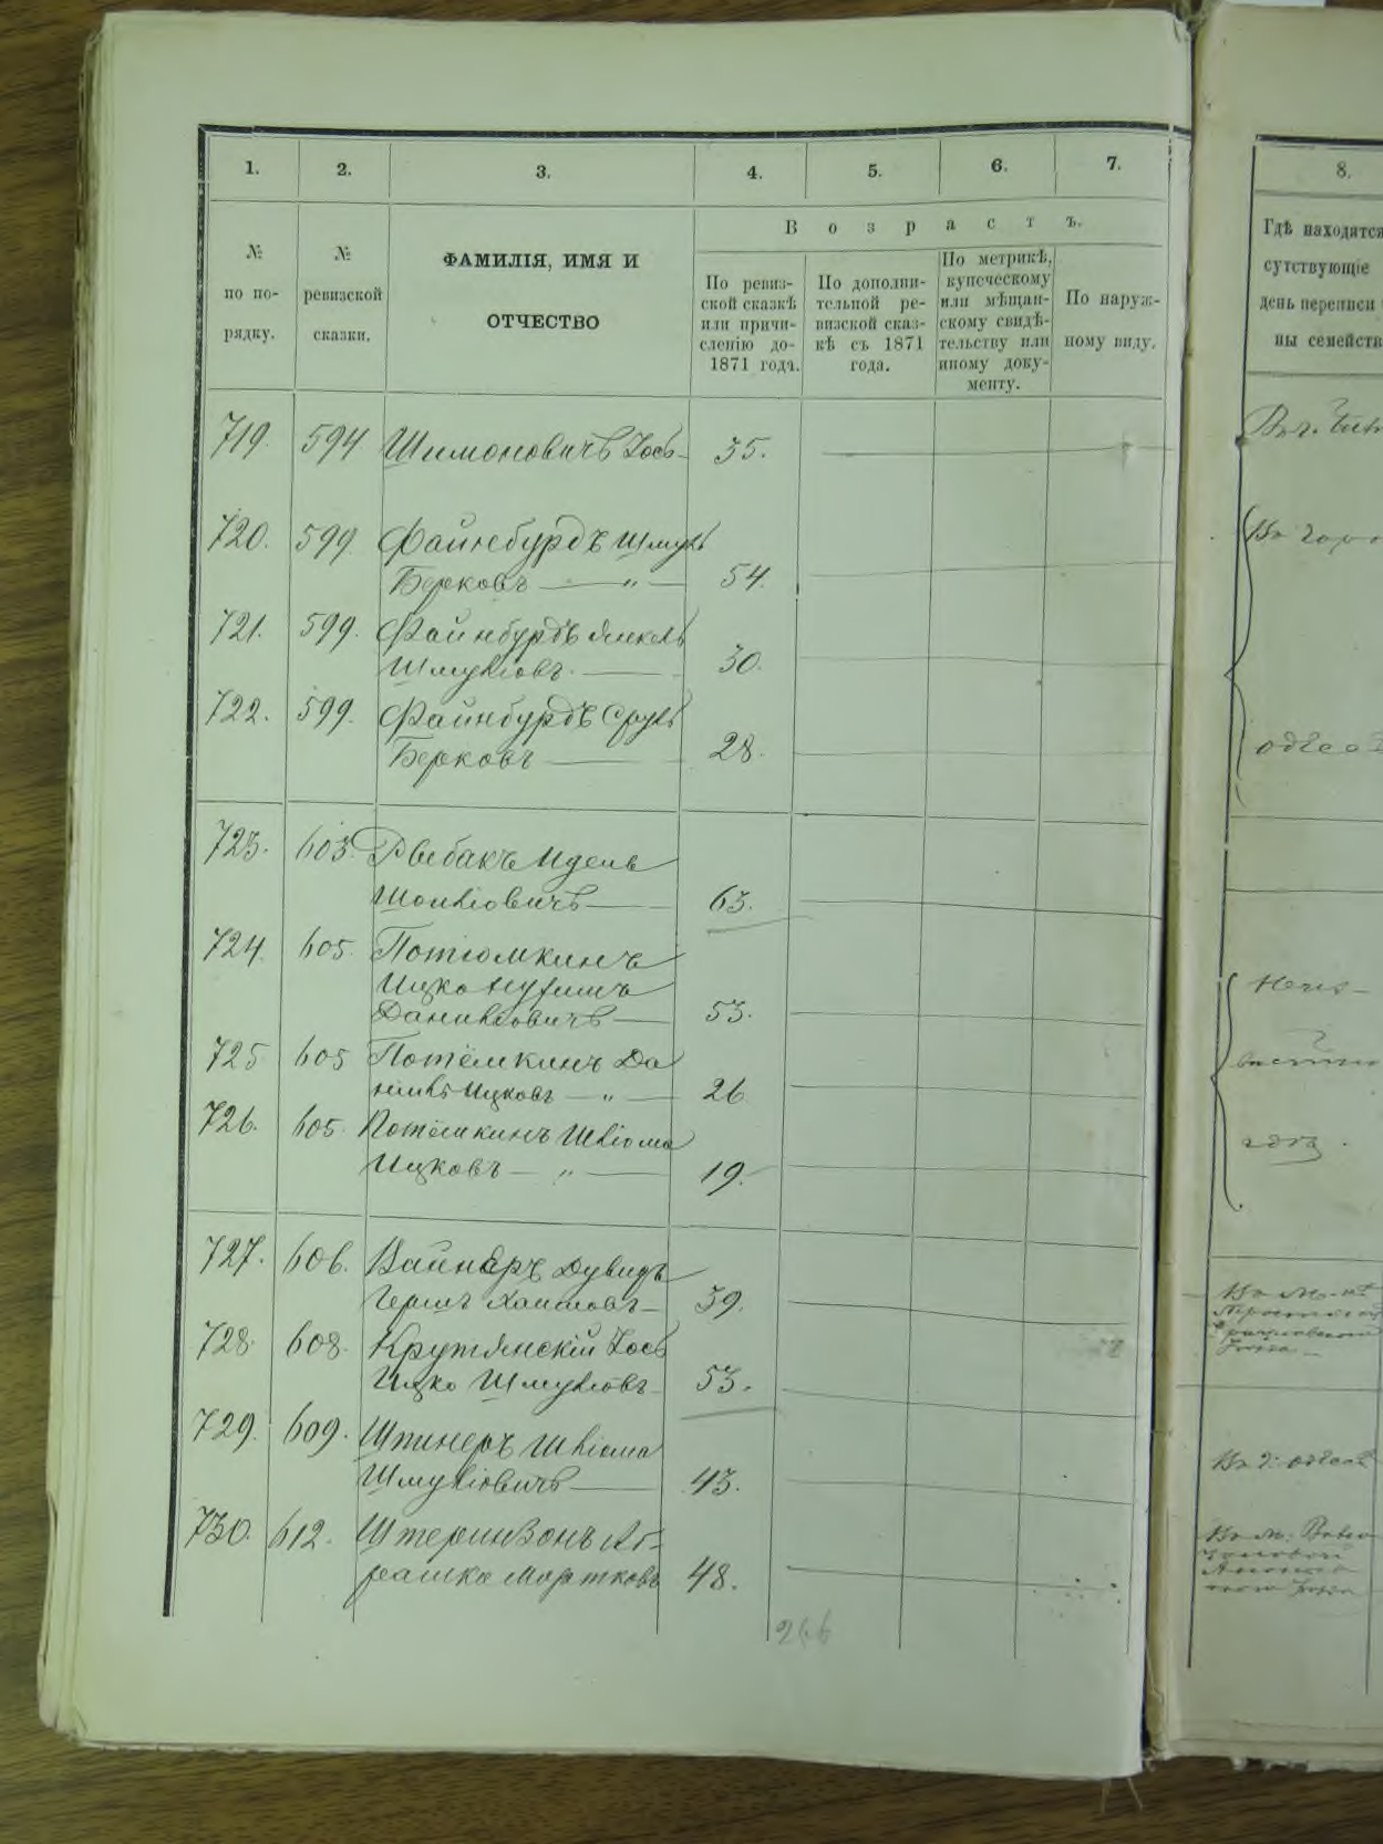 1. 2. 3. 4. 5. 6. 7.
№ по по- рядку.
№ ревизской сказки.
ФАМИЛІЯ, ИМЯ И
ОТЧЕСТВО
Возрастъ.
По ревиз-
ской сказкѣ
или причи-
сленію до-
1871 года.
По дополни-
тельной ре-
визской сказ-
кѣ съ 1871
года.
По метрикѣ,
купеческому
или мѣщан-
скому свидѣ-
тельству или
иному доку-
менту.
По наруж-
ному виду.
719. 594 Шимоновичъ Іось 35.
720. 599 Файнбурдъ Шмуль
Берковъ — " — 54.
721. 599. Файнбурдъ Янкель
Шмулiовъ. — 30.
722. 599. Файнбурдъ Сруль
Берковъ — 28.
723. 603. Рыбакъ Идель
Шоилiовичъ — 63.
724. 605. Потiомкинъ
Ицко
Данилiовичъ — 53.
725 605 Потёмкинъ Да
нiилъ Ицковъ — " — 26
726. 605. Потёмкинъ Шлiома
Ицковъ — " — 19.
727. 606. Вайнеръ Дувидъ
Гершъ Хаимовъ — 39.
728. 608. Крутянскiй Iось
Ицко Шмулiовъ — 53.
729. 609. Шпинеръ Шлiома
Шмулiовичъ — 43.
730. 612. Штеринзонъ Аб-
рашка Мортковъ 48.
266
8.
Гдѣ находятся
сутствующіе
день переписи
ны семейств